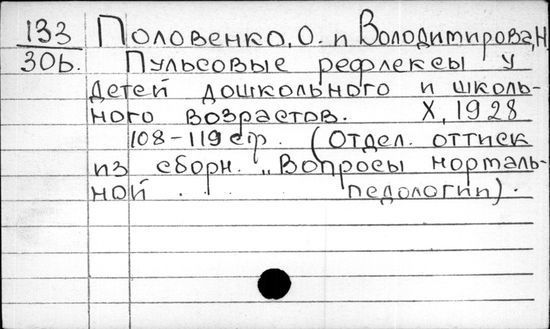 133 Половенко, О. и Володимирова, Н
306. Пульсовые рефлексы у
детей дошкольного и школь-
ного возрастов. X, 1928
108-119 стр. (Отдел. оттиск
из сборн. „Вопросы нормаль-
ной . . педологии).